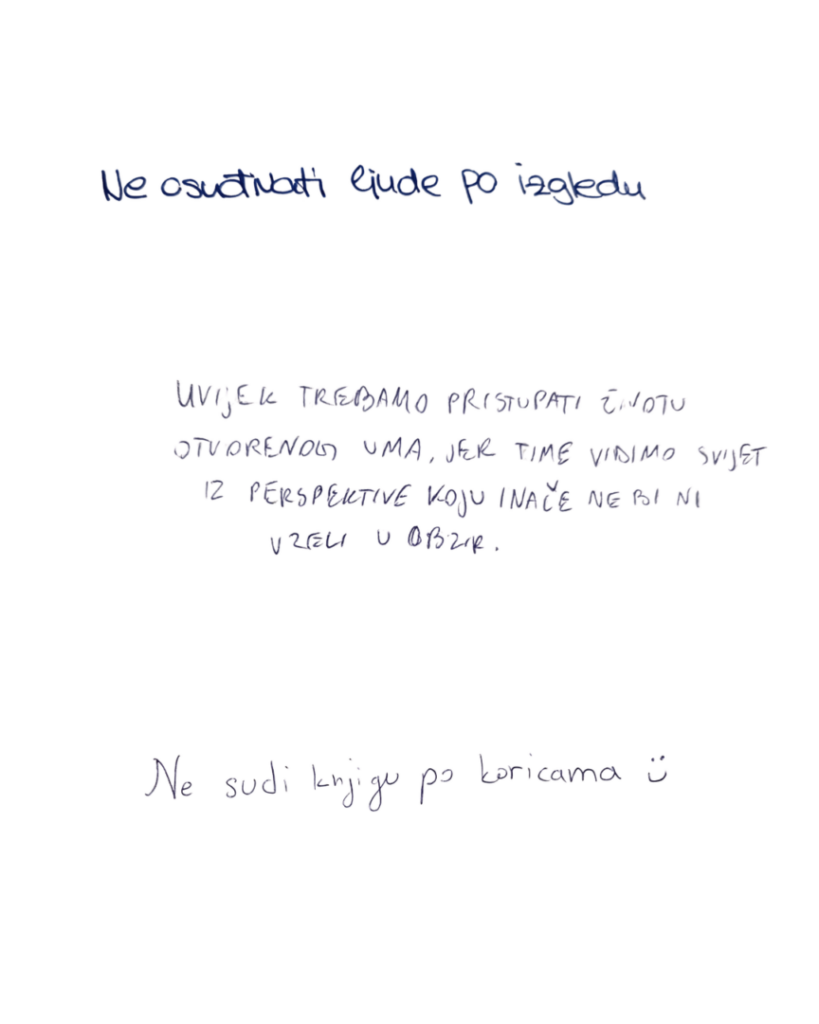 Ne osuđivati ljude po izgledu
UVIJEK TREBAMO PRISTUPATI ŽIVOTU
OTVORENOG UMA, JER TIME VIDIMO SVIJET
IZ PERSPEKTIVE KOJU INAČE NE BI NI
VZELI U OBZIR.
Ne sudi knjigu po koricama